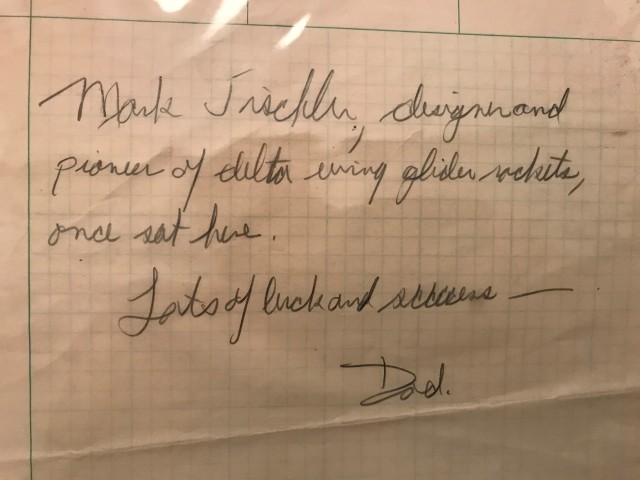 Mark Tischler, designer and
pioneer of delta wing glider rockets,
once sat here.
Lots of luck and success —
Dad.